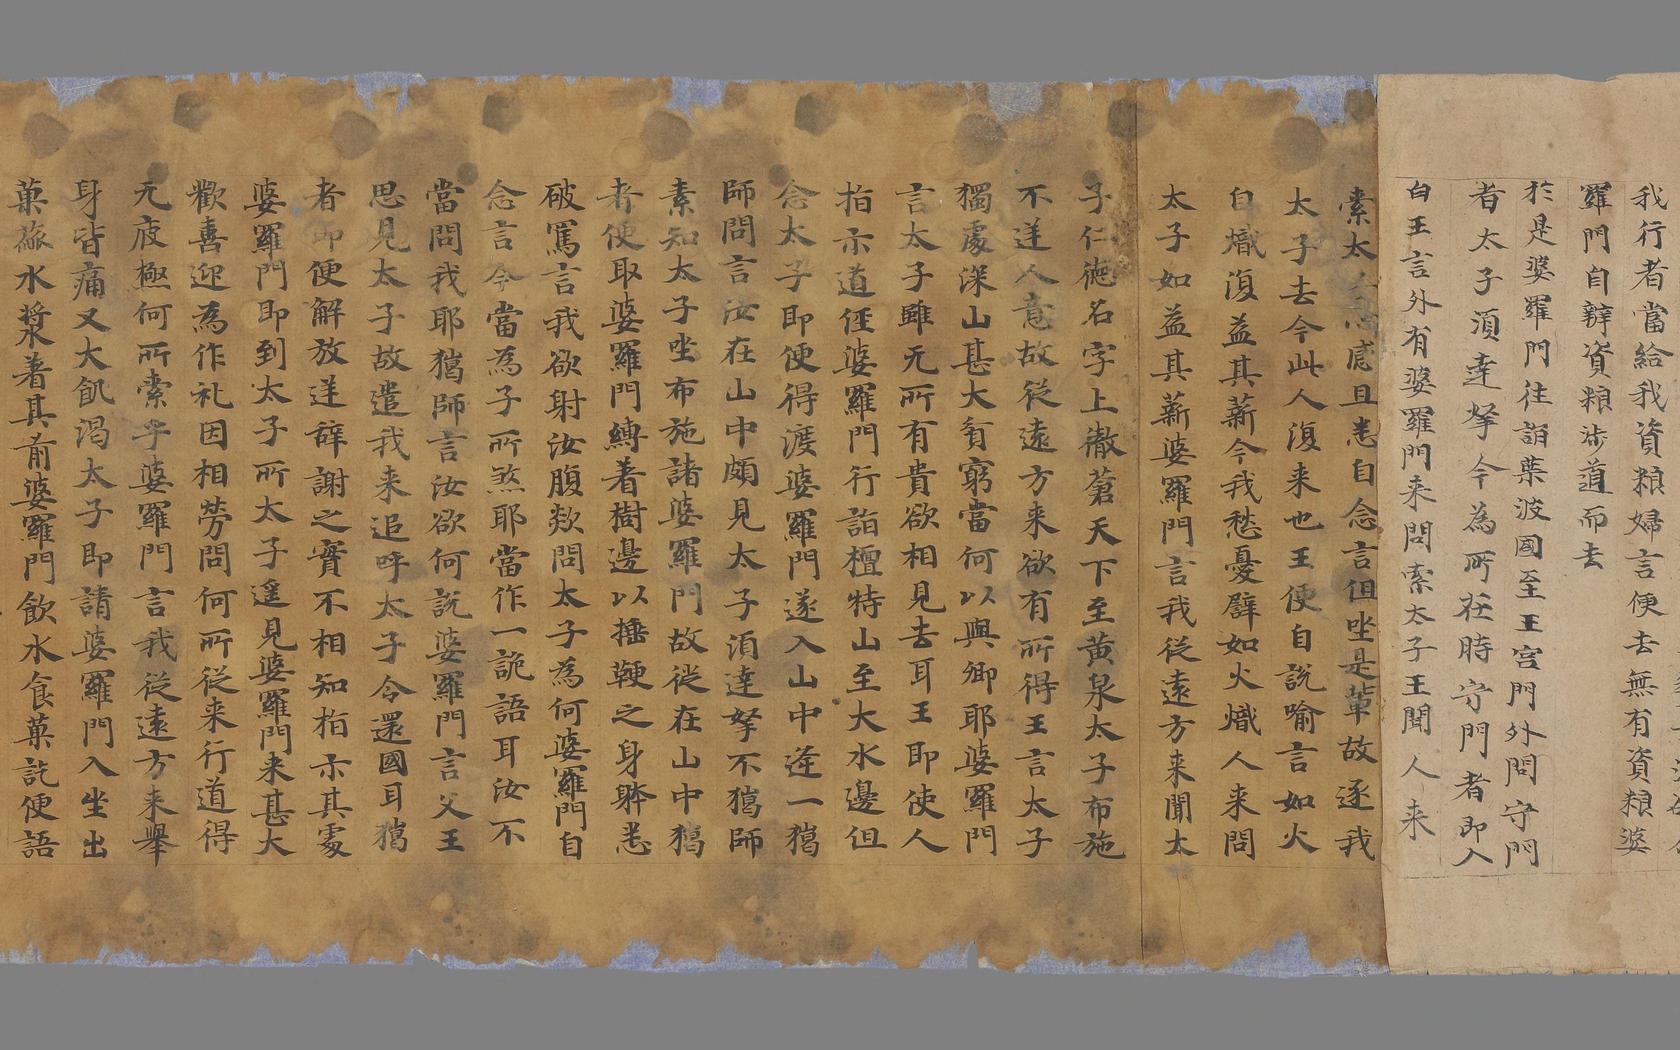 我行者當給我資粮婦言便去無有資粮婆
羅門自辦資粮涉道而去
於是婆羅門往詣葉波國至王宮門外問守門
者太子須達拏今為所在時守門者即入
白王言外有婆羅門来問索太子王聞人来
索太子感且恚自念言但坐是輩故逐我
太子去今此人復来也王便自説喻言如火
自熾復益其薪今我愁憂譬如火熾人来問
太子如益其薪婆羅門言我従遠方来聞太
子仁徳名字上徹蒼天下至黄泉太子布施
不逆人意故従遠方来欲有所得王言太子
獨處深山甚大貧窮當何以與卿耶婆羅門
言太子雖无所有貴欲相見去耳王即使人
指示道俓婆羅門行詣檀特山至大水邊但
念太子即便得渡婆羅門遂入山中逢一獦
師問言汝在山中頗見太子須達拏不獦師
素知太子坐布施諸婆羅門故徙在山中獦
者便取婆羅門縛著樹邊以捶鞭之身躰悉
破罵言我欲射汝腹噉問太子為何婆羅門自
念言今當為子所煞耶當作一詭語耳汝不
當問我耶獦師言汝欲何説婆羅門言父王
思見太子故遣我来追呼太子令還國耳獦
者即便解放逆辞謝之實不相知指示其處
婆羅門即到太子所太子遥見婆羅門来甚大
歡喜迎為作礼因相勞問何所従来行道得
无疲極何所索乎婆羅門言我従遠方来舉
身皆痛又大飢渇太子即請婆羅門入坐出
菓蓏水漿著其前婆羅門飲水食菓訖便語